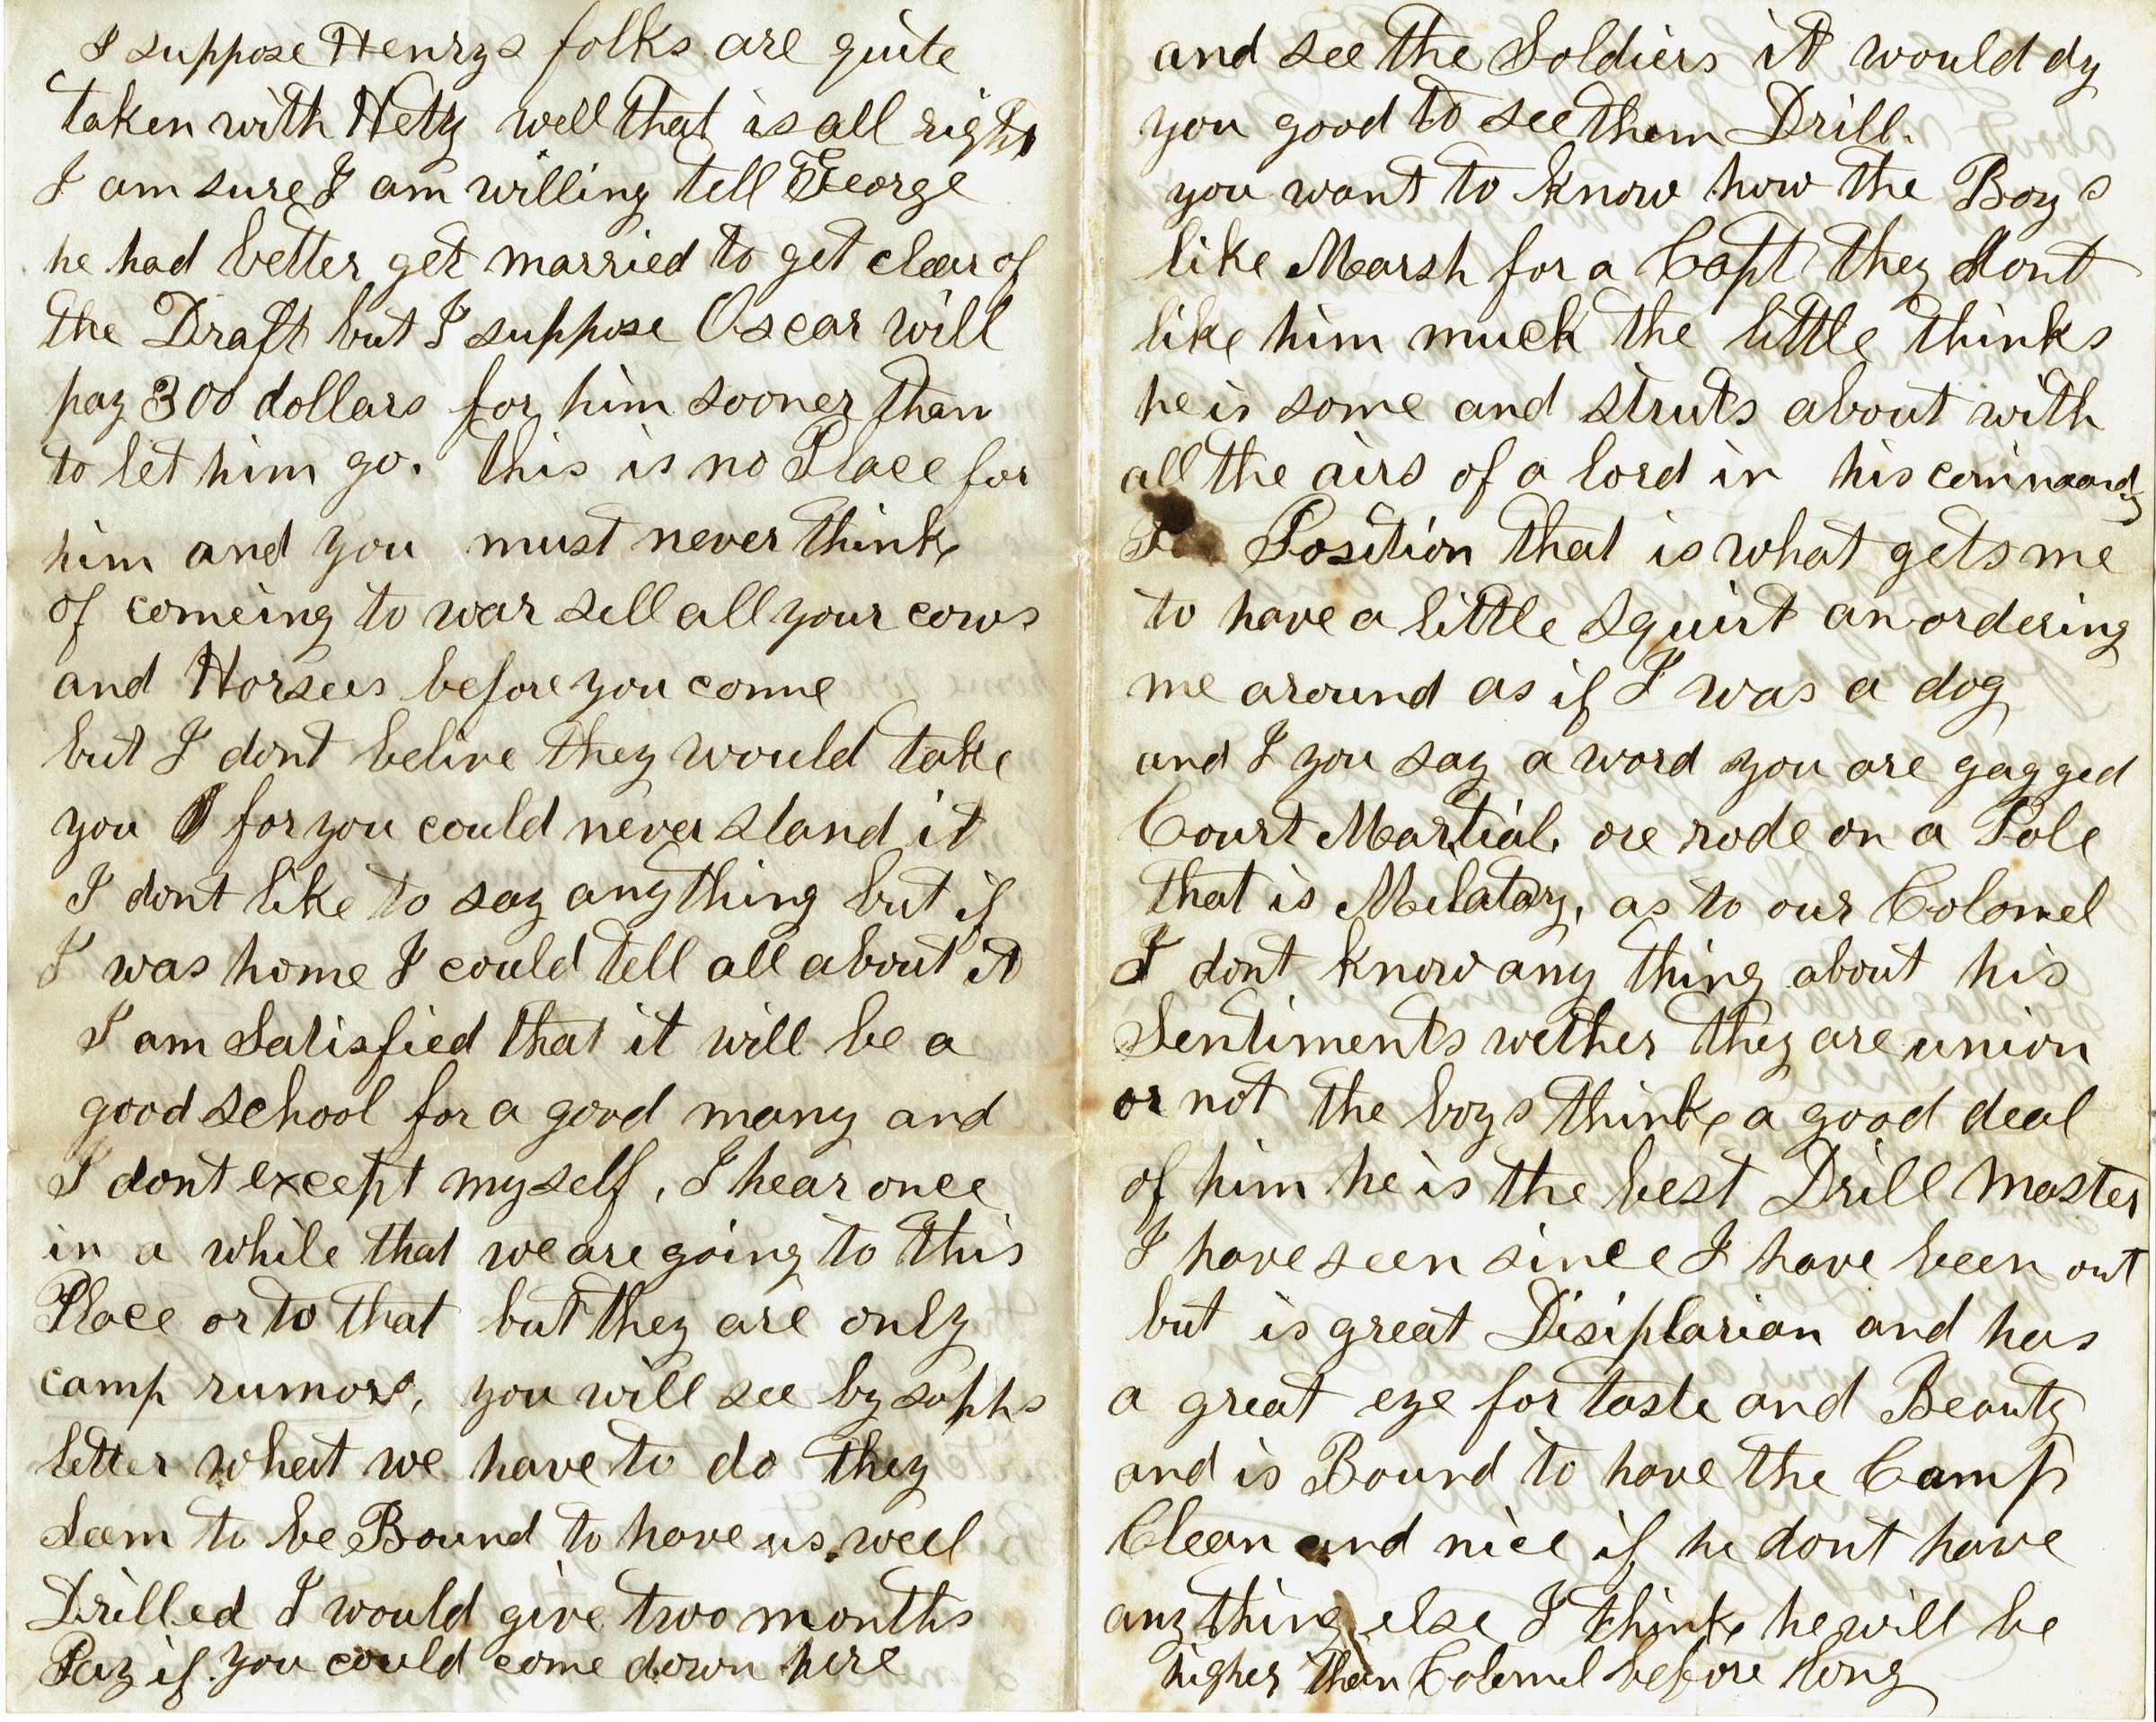 I suppose Henrys folks are quite
taken with Hety well that is all right
I am sure I am willing tell George
he had better get married to get clear of
the Draft but I suppose Oscar will
pay 300 dollars for him sooner than
to let him go. this is no Place for
him and you must never think
of comeing to war sell all your cows
and Horses before you come
but I dont belive they would take
you for you could never stand it
I dont like to say anything but if
I was home I could tell all about it
I am Satisfied that it will be a
good school for a good many and
I dont except myself, I hear once
in a while that we are going to this
Place or to that but they are only
camp rumors, you will see by sophs
letter what we have to do they
seem to be Bound to have us well
Drilled I would give two months
Pay if you could come down here
and see the Soldiers it would dy
you good to see them Drill.
you want to know how the Boys
like Marsh for a Capt they dont
like him much the little thinks
he is some and struts about with
all the airs of a lord in his
Position that is what gets me
to have a little squirt an ordering
me around as if I was a dog
and I you say a word you are gagged
Court Martial, ore rode on a Pole
that is Milatary, as to our Colonel
I dont know any thing about his
Sentiments wether they are union
or not the boys think a good deal
of him he is the best Drill Master
I have seen since I have been out
but is great Disiplarian and has
a great eye for taste and Beauty
and is Bound to have the Camp
Clean and nice if he dont have
anything else I think he will be
higher than Colonel before long